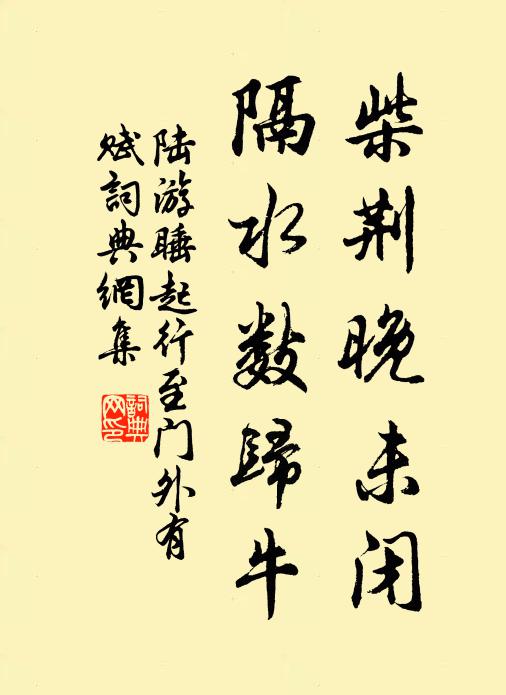 柴荆晚未闭
隔水数歸牛
陆游睡起行至门外有
赋詞典網集
詞典
网印